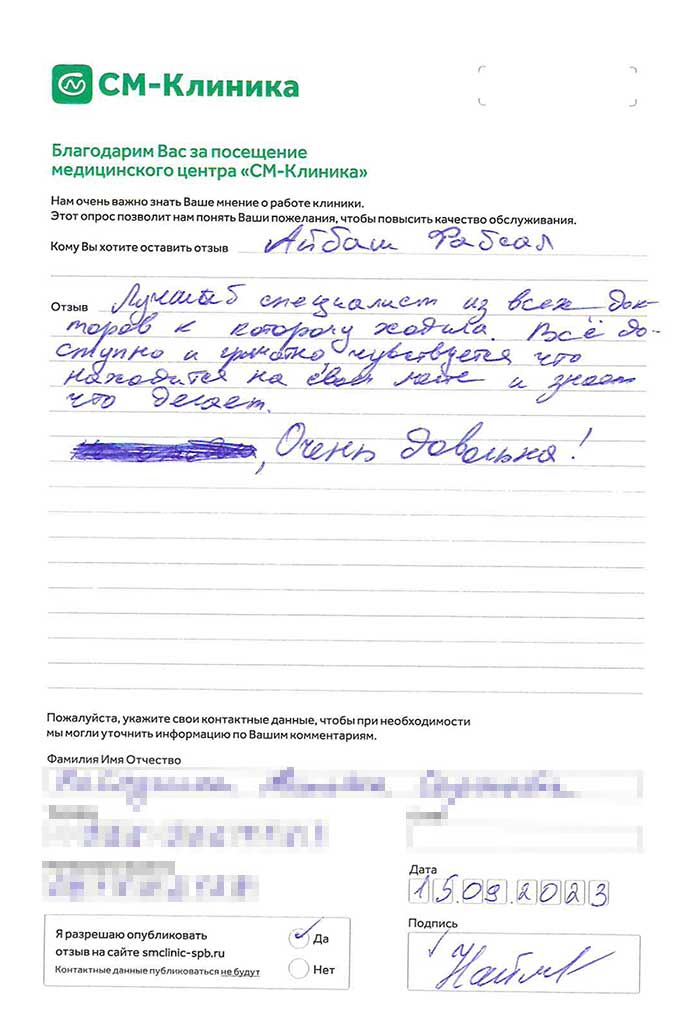 СМ-Клиника
Благодарим Вас за посещение
медицинского центра «СМ-Клиника»
Нам очень важно знать Ваше мнение о работе клиники.
Этот опрос позволит нам понять Ваши пожелания, чтобы повысить качество обслуживания.
Кому Вы хотите оставить отзыв Айбаш Фабсал
Отзыв Лучший специалист из всех док-
торов к которому ходила. Всё до-
ступно и грамотно, чувствуется что
находится на своём месте и знает
что делает.
, Очень довольна!
Пожалуйста, укажите свои контактные данные, чтобы при необходимости
мы могли уточнить информацию по Вашим комментариям.
Фамилия Имя Отчество
Дата
15.09.2023
Я разрешаю опубликовать
отзыв на сайте smclinic-spb.ru
Контактные данные публиковаться не будут
Да
Нет
Подпись